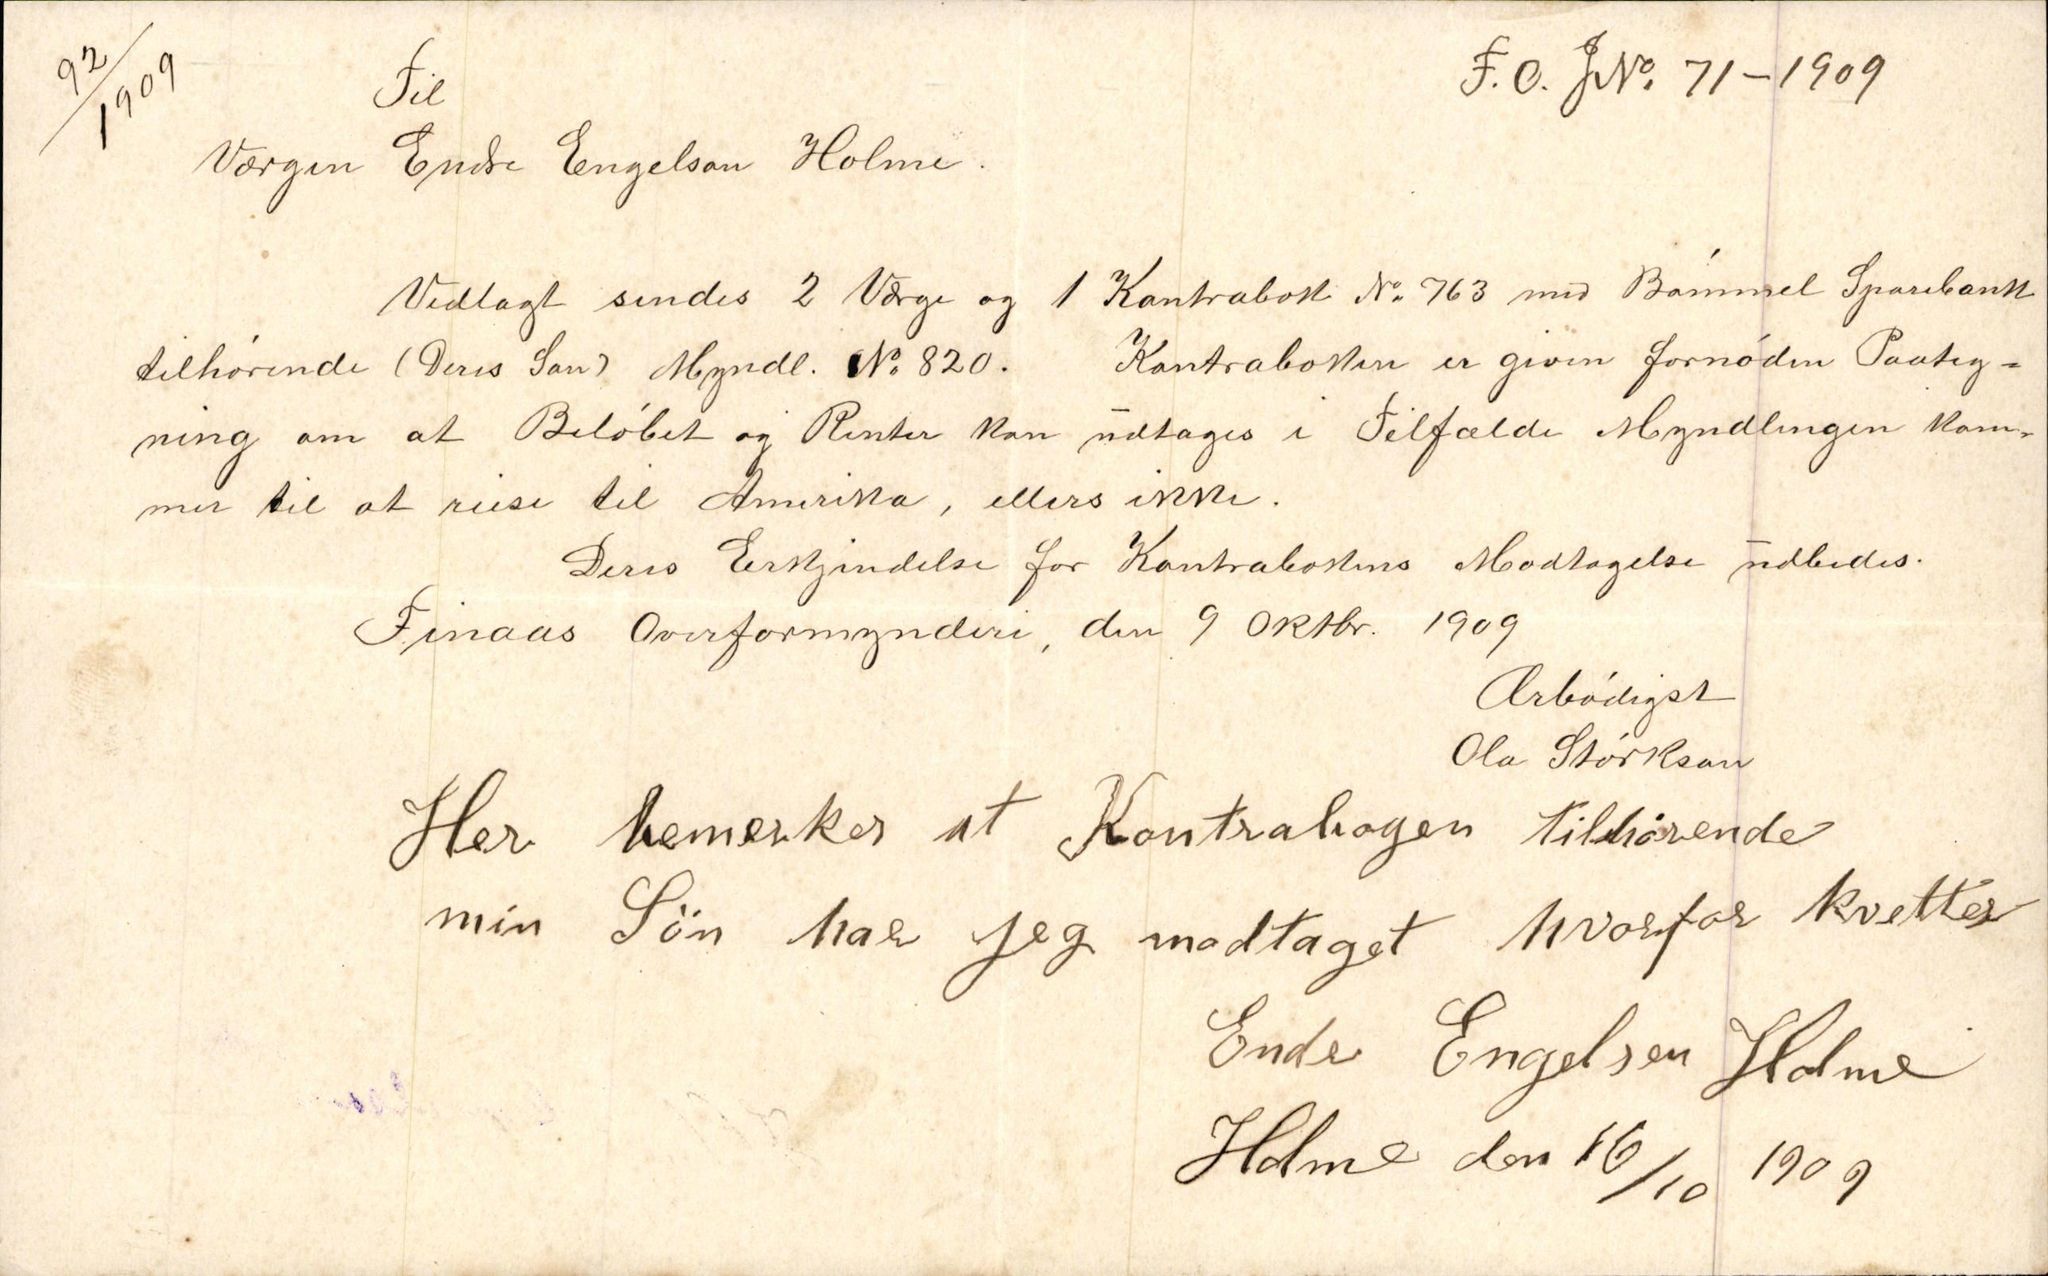 92/1909
F. O. J No. 71 - 1909
Til
Værgen Endre Engelson Holme.
Vedlagt sendes 2 Værge og 1 Kontrabok No. 763 med Bømmel Sparebank
tilhørende (Deres Søn) Myndl. No. 820. Kontraboken er given fornøden Paateg-
ning om at Beløbet og Renter kan udtages i Tilfælde Myndlingen kom-
mer til at reise til Amerika, ellers ikke.
Deres Erkjendelse for Kontrabokens Modtagelse udbedes.
Finaas Overformynderi, den 9 Oktbr. 1909
Ærbødigst
Ola Størkson
Her bemerkes at Kontrabogen tilhørende
min Sön har jeg modtaget hvorfor kvetter
Ende Engelsen Holme
Holme den 16/10 1909